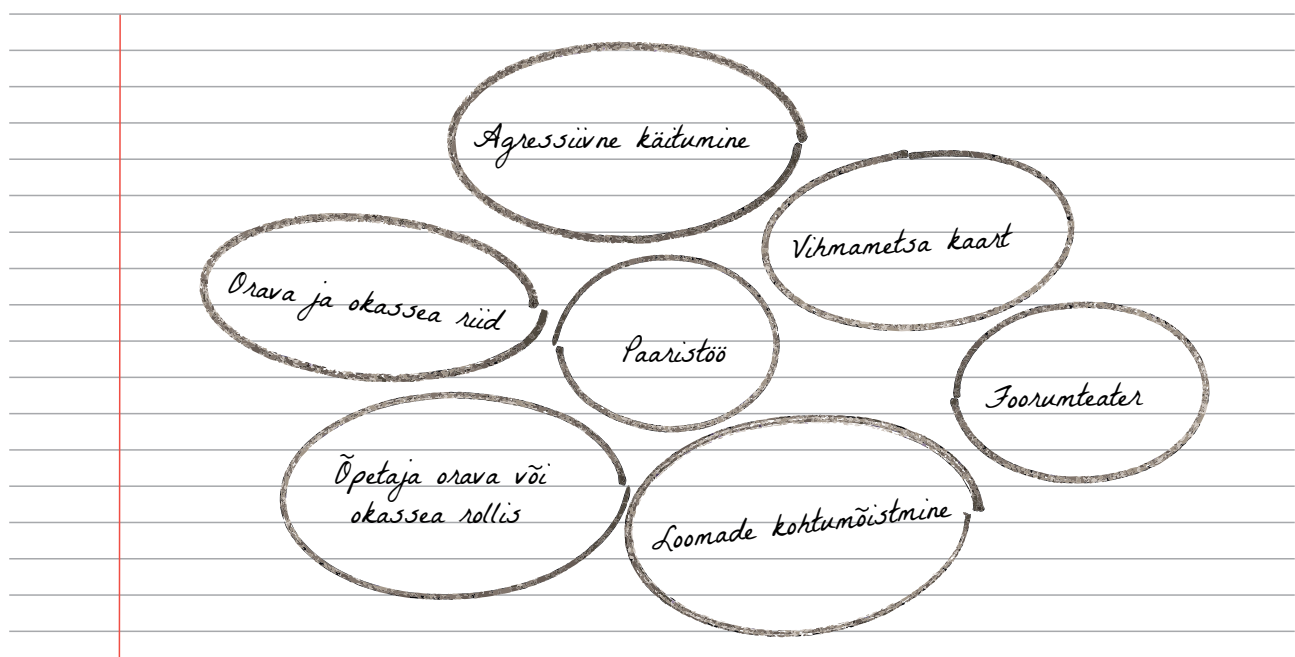 Agressiivne käitumine
Vihmametsa kaart
Orava ja okassea riid
Paaristöö
Foorumteater
Õpetaja orava või
okassea rollis
Loomade kohtumõistmine